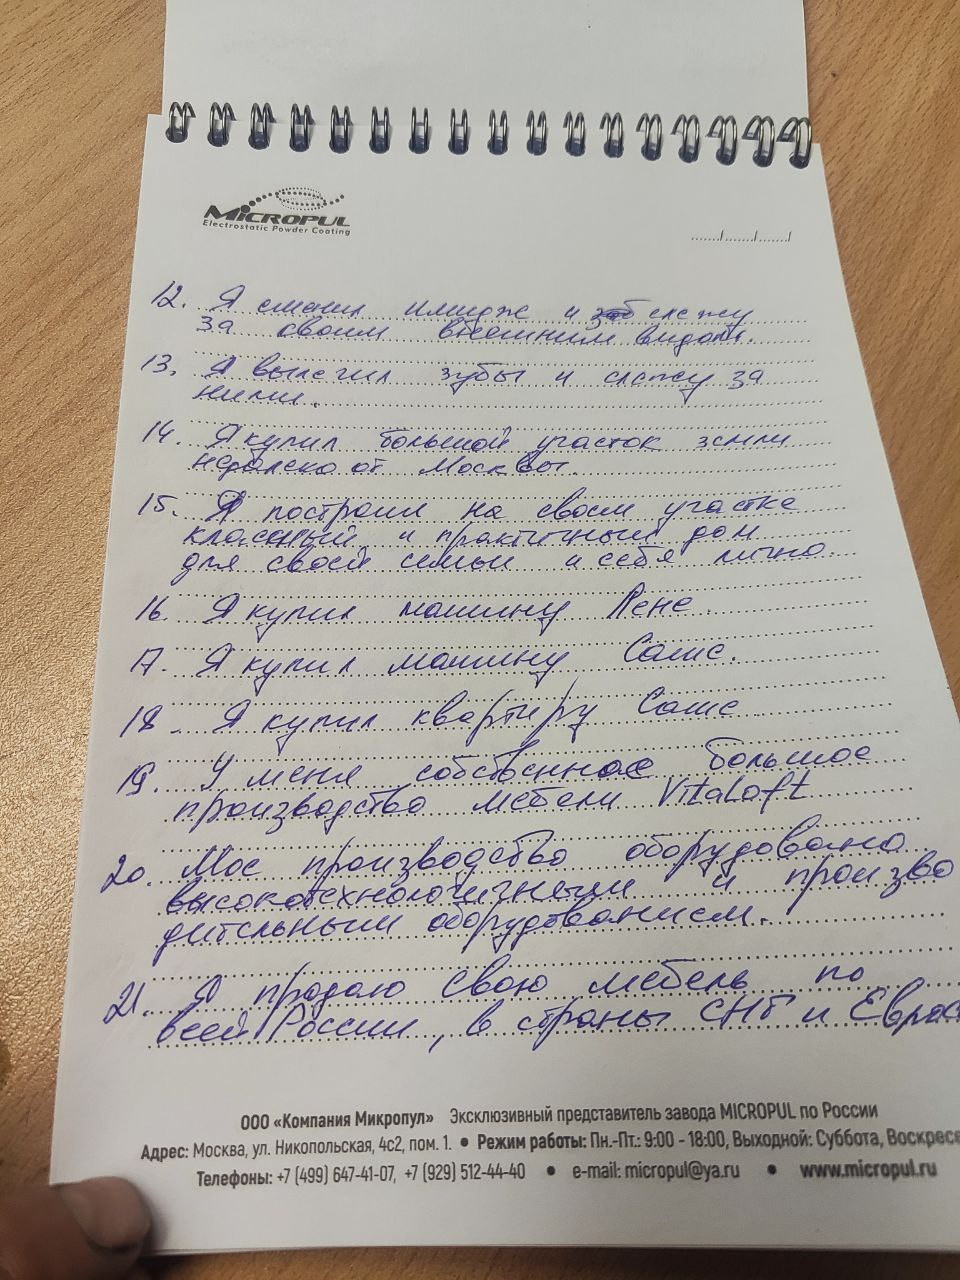 MICROPUL
Electrostatic Powder Coating
......./......./......./
12. Я сменил имидж и слежу
за своим внешним видом.
13. Я вылечил зубы и слежу за
ними.
14. Я купил большой участок земли
недалеко от Москвы.
15. Я построил на своем участке
класный и практичный дом
для своей семьи и себя лично.
16. Я купил машину Лене.
17. Я купил машину Саше.
18. Я купил квартиру Саше
19. У меня собственное большое
производство мебели VitaLoft
20. Мое производство оборудовано
высокотехнологичным и произво
дительным оборудованием.
21. Я продаю свою мебель по
всей России, в страны СНГ и Еврос
ООО «Компания Микропул» Эксклюзивный представитель завода MICROPUL по России
Адрес: Москва, ул. Никопольская, 4с2, пом. 1. • Режим работы: Пн.-Пт.: 9:00 - 18:00, Выходной: Суббота, Воскресе
Телефоны: +7 (499) 647-41-07, +7 (929) 512-44-40 • e-mail: micropul@ya.ru • www.micropul.ru